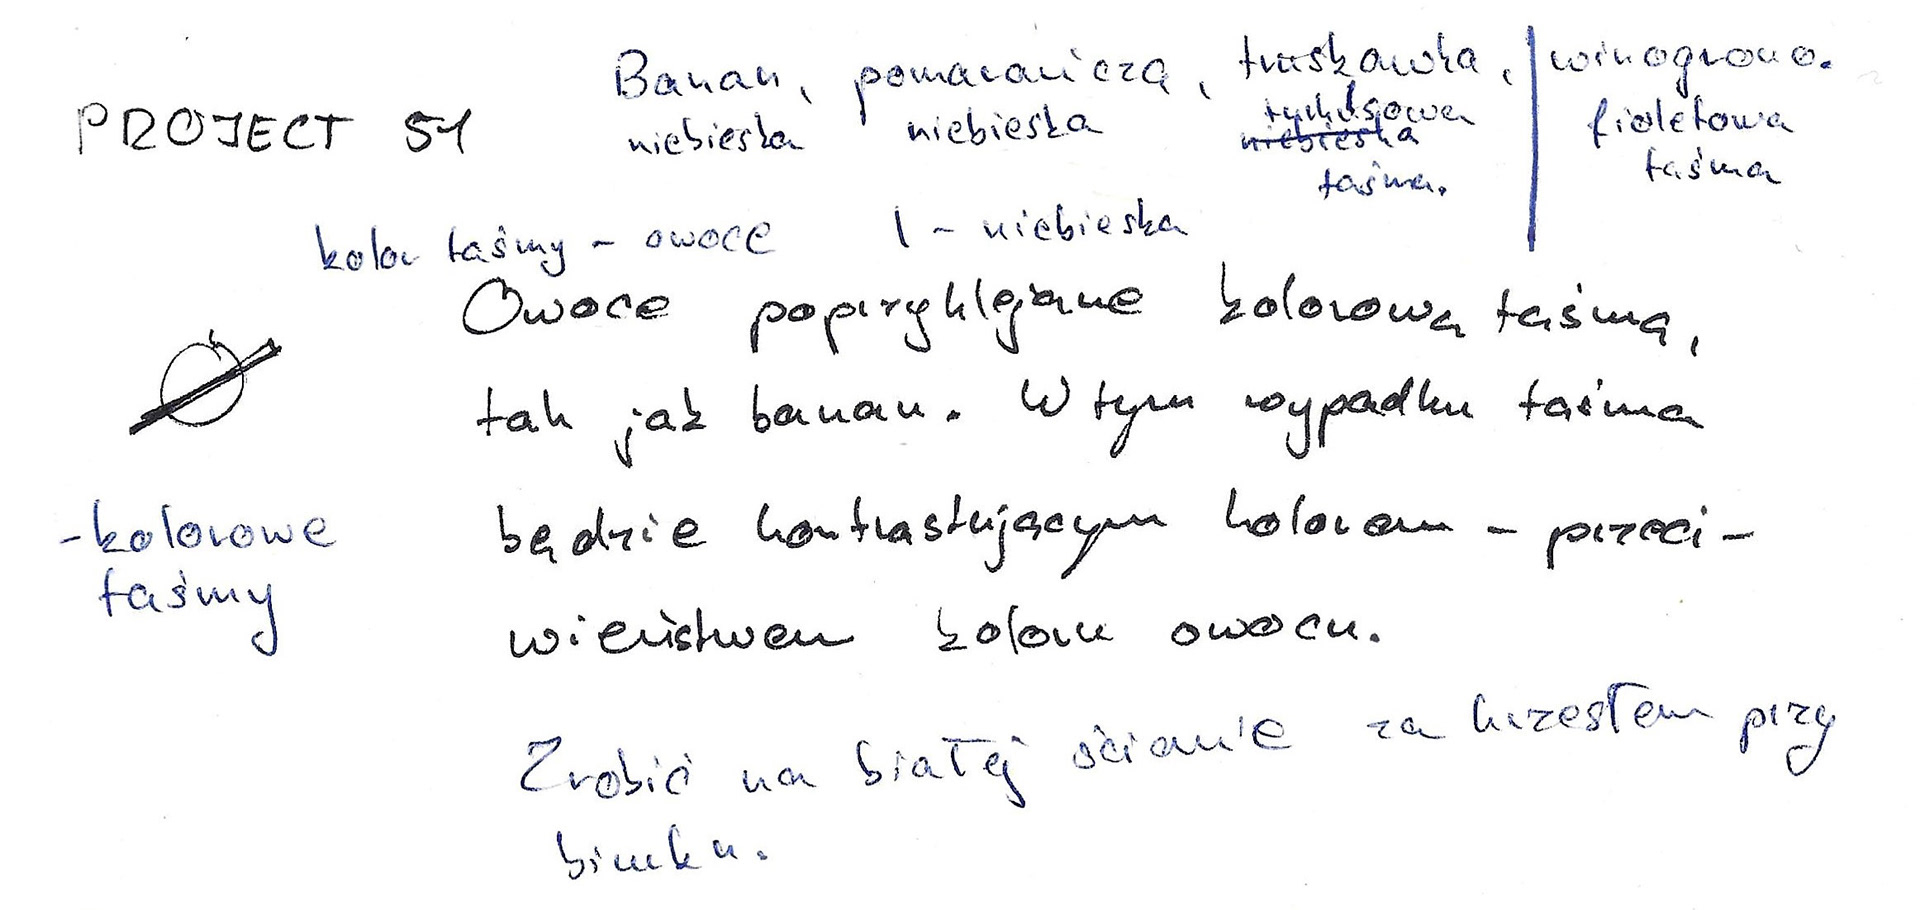 PROJECT 51
Banan, pomarańcza, truskawka, | winogrono.
niebieska niebieska turkusowa fioletowa
niebieska taśma
taśma.
kolor taśmy - owoce 1 - niebieska
Owoce poprzyklejane kolorową taśmą,
tak jak banan. W tym wypadku taśma
będzie kontrastującym kolorem - przeci-
wieństwem koloru owocu.
- kolorowe
taśmy
Zrobić na białej ścianie za krzesłem przy
biurku.